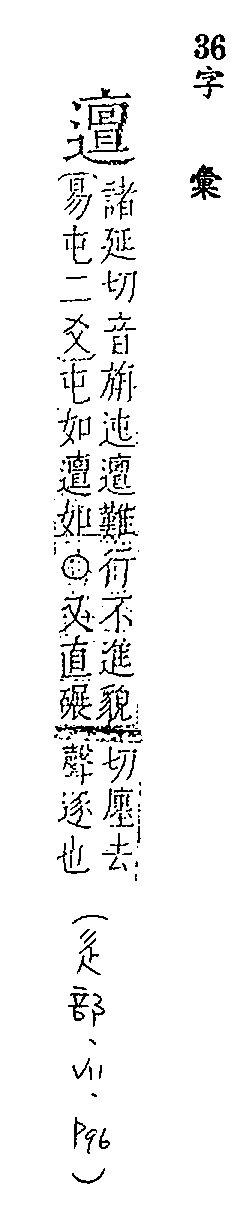 36字彙
邅
諸延切音旃迍邅難行不進貌
易屯二爻屯如邅如○又直碾
切廛去
聲逐也
(辵部、VII、P96)